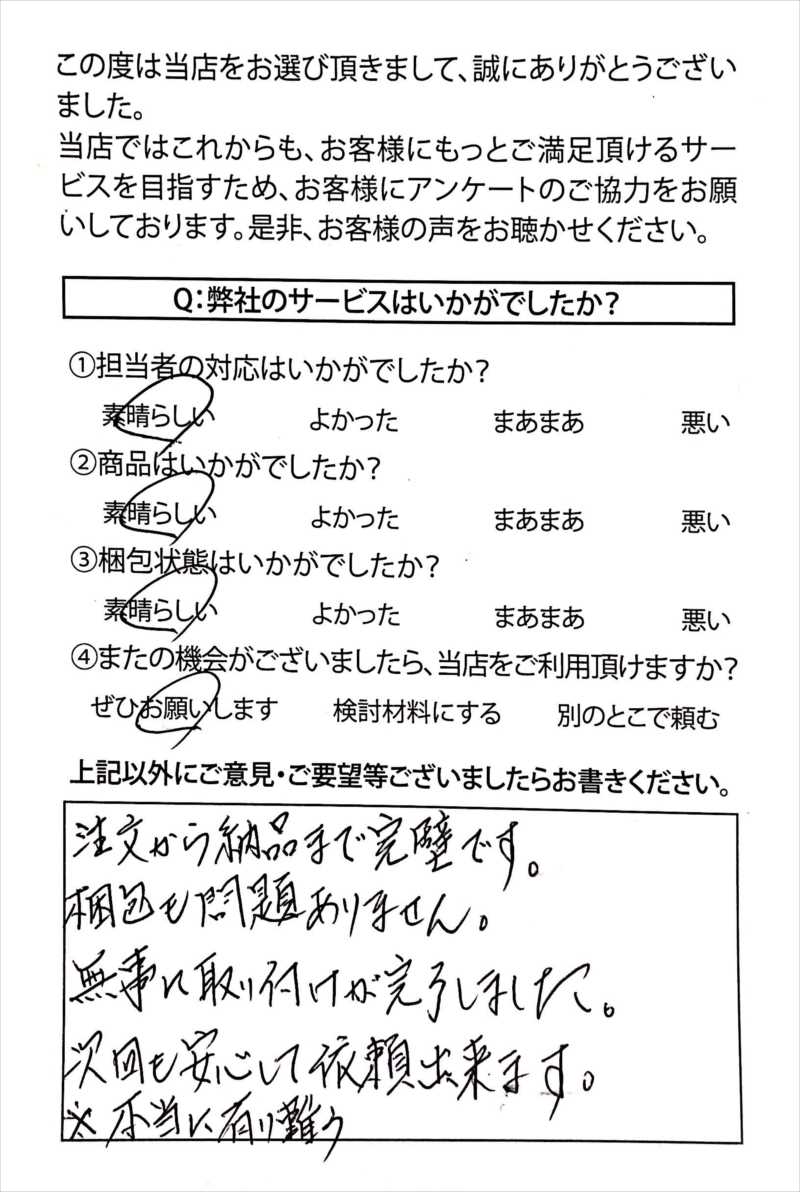 この度は当店をお選び頂きまして、誠にありがとうござい
ました。
当店ではこれからも、お客様にもっとご満足頂けるサー
ビスを目指すため、お客様にアンケートのご協力をお願
いしております。是非、お客様の声をお聴かせください。
Q：弊社のサービスはいかがでしたか？
①担当者の対応はいかがでしたか？
素晴らしい　よかった　まあまあ　悪い
②商品はいかがでしたか？
素晴らしい　よかった　まあまあ　悪い
③梱包状態はいかがでしたか？
素晴らしい　よかった　まあまあ　悪い
④またの機会がございましたら、当店をご利用頂けますか？
ぜひお願いします　検討材料にする　別のとこで頼む
上記以外にご意見・ご要望等ございましたらお書きください。
注文から納品まで完璧です。
梱包も問題ありません。
無事に取り付けが完了しました。
次回も安心して依頼出来ます。
※本当に有り難う